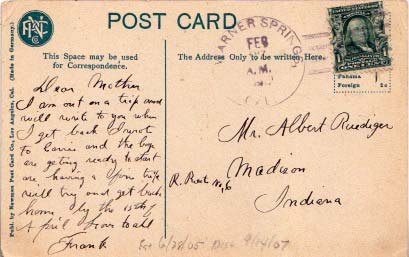 POST CARD
This Space may be used
for Correspondence.
The Address Only to be written Here.
WARNER SPRINGS
FEB
A.M.
CAL.
Panama
Foreign 2c
Publ. by Newman Post Card Co., Los Angeles, Cal. (Made in Germany.)
Dear Mother
I am out on a trip and
will write to you when
I get back I wrote
to Carrie and the boys
are getting ready to start
are having a fine trip
will try and get back
home by the 15th of
April Love to all
Frank
Mr. Albert Ruediger
Madison
R. Rout No, 6
Indiana
6/28/05 9/14/07